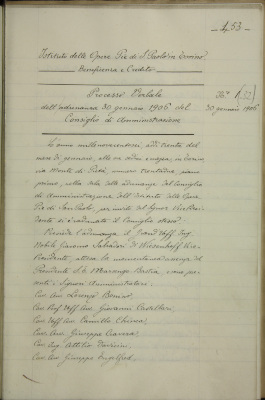 153
Istituto delle Opere Pie di S. Paolo in Torino
Beneficenza e Credito
Processo Verbale
dell'adunanza 30 gennaio 1906 del
Consiglio di Amministrazione
N° 132
30 gennaio 1906
L'anno millenovecentosei, addì trenta del
mese di gennaio, alle ore in Torino
Monte di Pietà, numero trentadue, piano
primo, nella sala delle adunanze del Consiglio
di Amministrazione dell'Istituto delle Opere
Pie di San Paolo, per invito del Signor
si è radunato il Consiglio stesso.
Presiede l'adunanza il Grand'Uff. Ing.
Nobile Giacomo Salvadori di Wiesenhoff Vice
Presidente, stante la momentanea assenza del
Presidente S. E. Marsengo Bastia, sono pre
senti i Signori Amministratori.
Cav. Avv. Lorenzo Bonino,
Cav. Prof. Uff. Avv. Giovanni Castellari,
Cav. Uff. Avv. Camillo
Cav. Avv. Giuseppe Cravera,
Cav. Ing. Attilio
Cav. Avv. Giuseppe Engelfred,